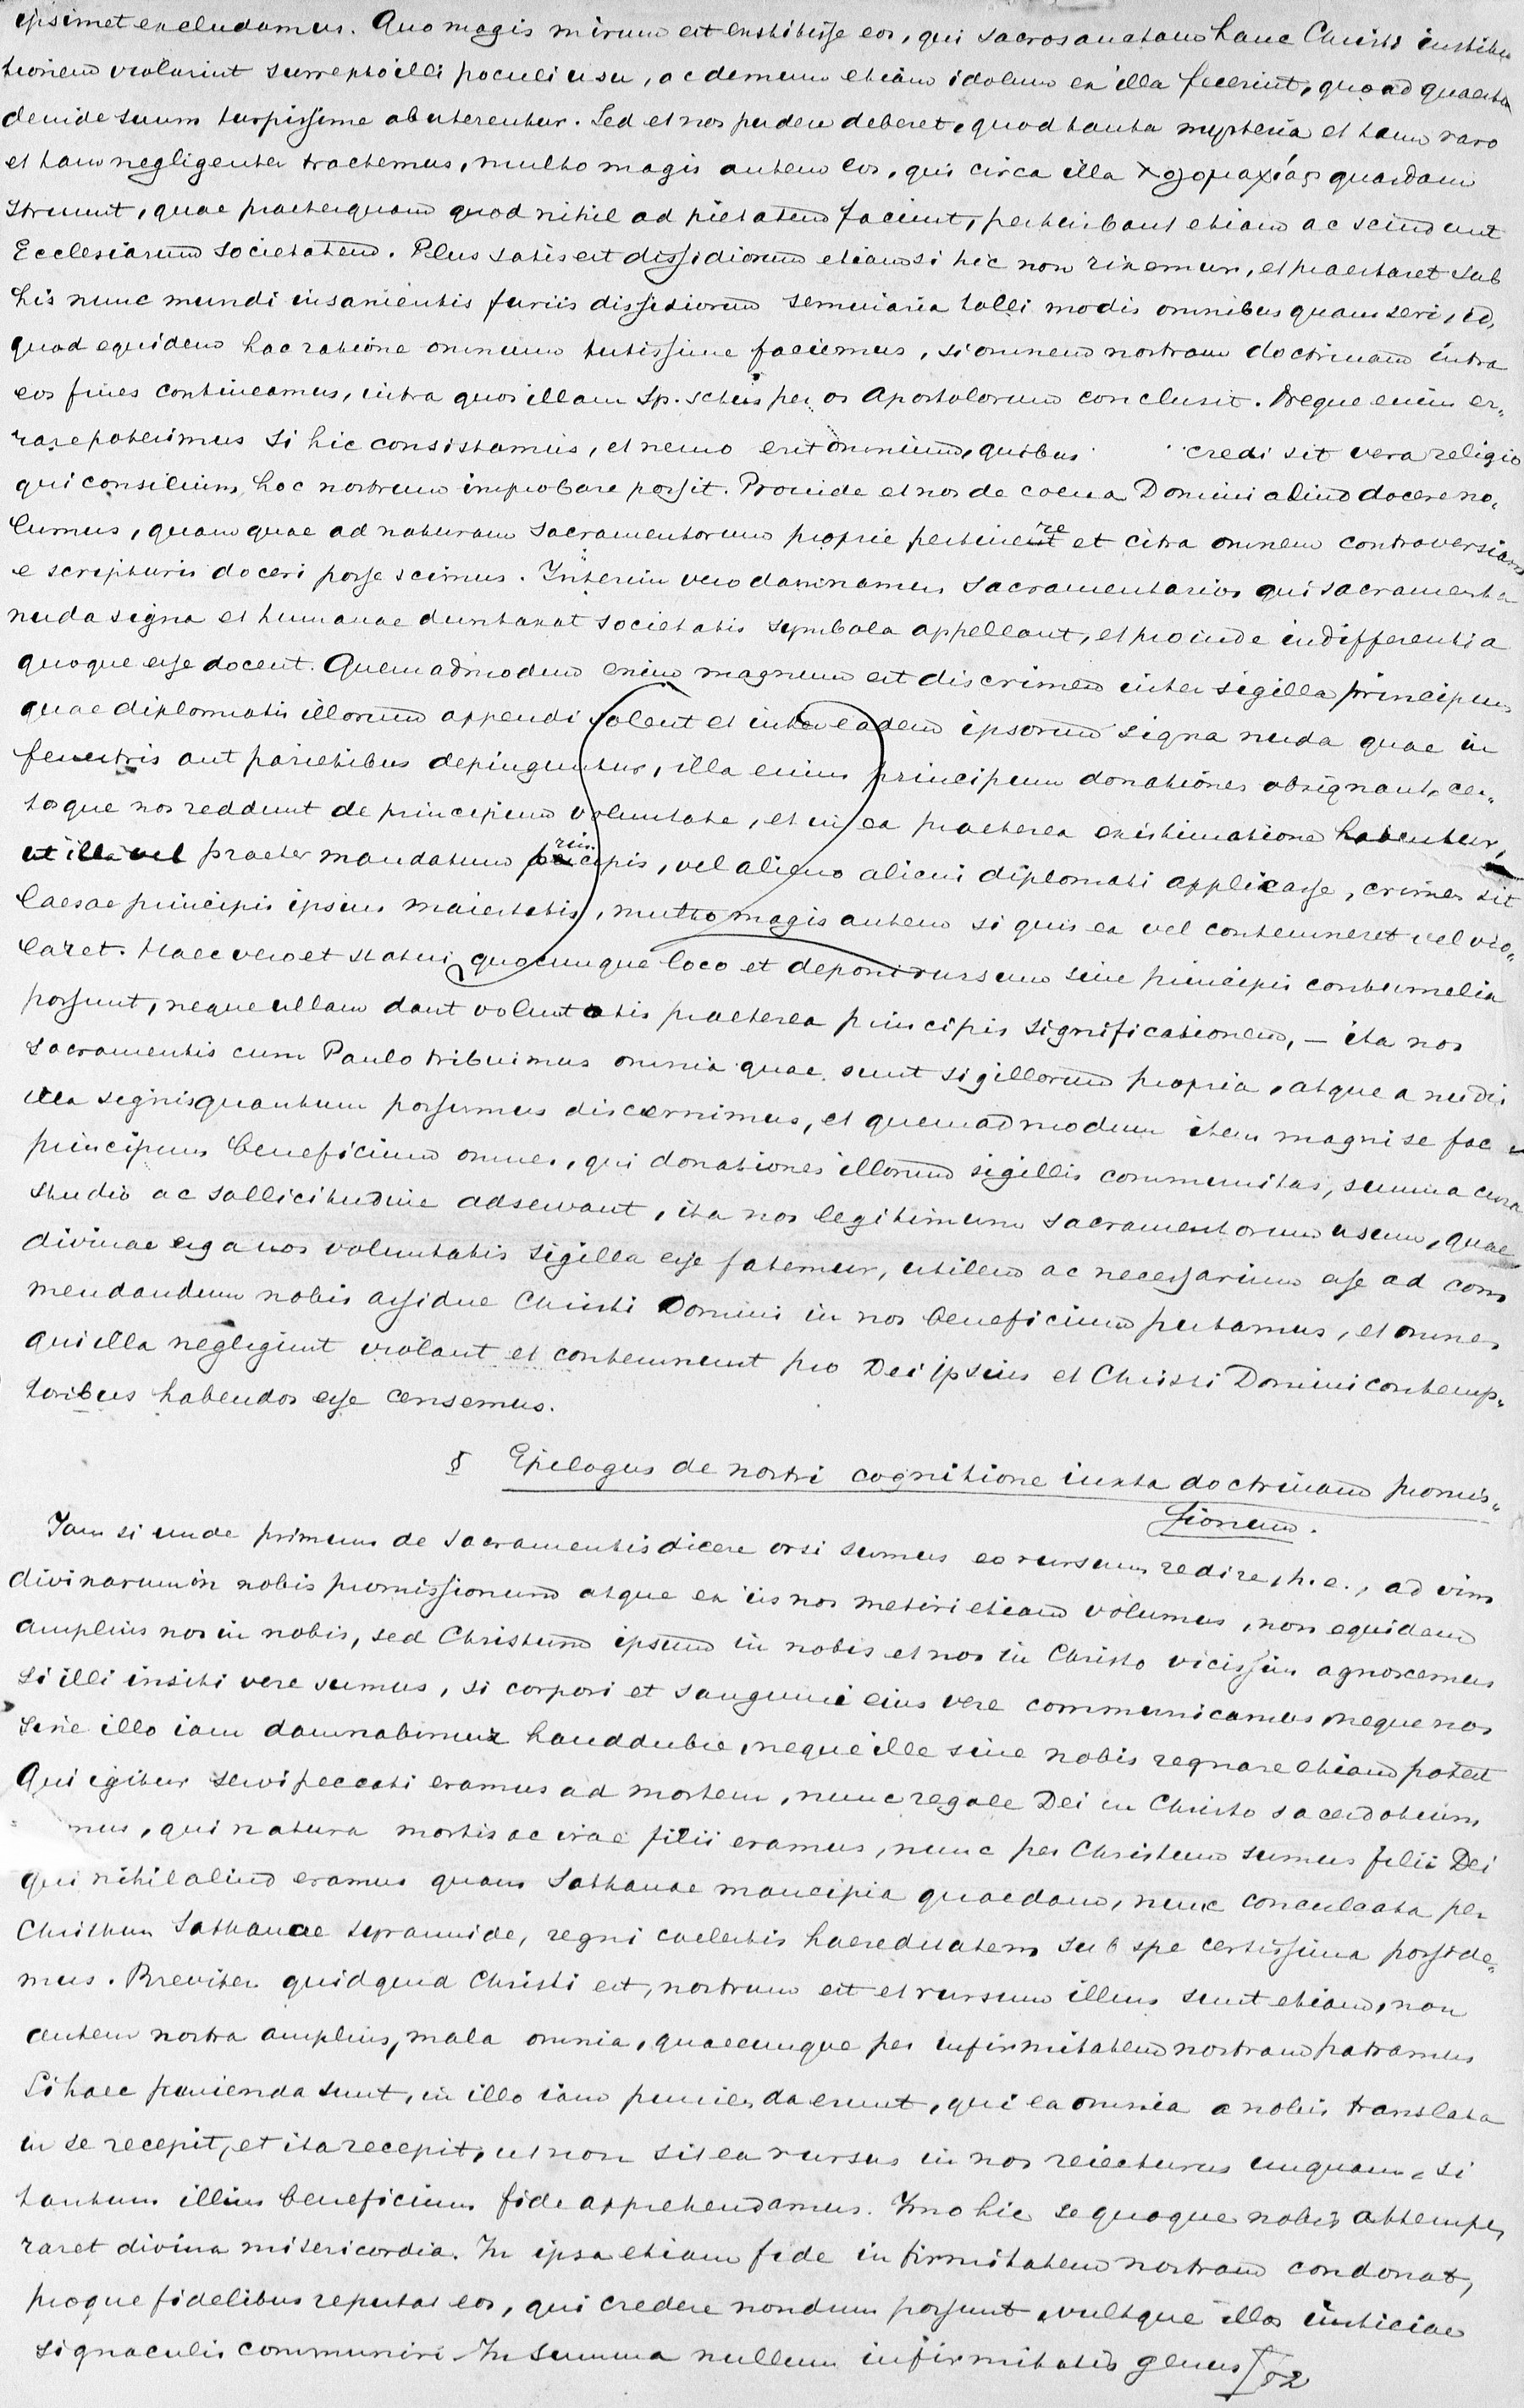 ipsimet excludamus. Quo magis mirum est exstitisse eos, qui sacrosanctam hanc Christi institu
tionem violarint surrepto illi poculi usu, ac demum etiam idolum ex illa fecerint, quo ad quaestum
deinde suum turpissime abuterentur. Sed et nos pudere deberet, quod tanta mysteria et tam raro
et tam negligenter tractemus, multo magis autem eos, qui circa illa λογομαχίας quasdam
struunt, quae praeterquam quod nihil ad pietatem faciunt, perturbant etiam ac scindunt
Ecclesiarum societatem. Plus satis est dissidiorum etiamsi hic non rixemur, et praestaret sub
his nunc mundi insanientis furiis dissidiorum seminaria tolli modis omnibus quam seri, id,
quod equidem hac ratione omnium tutissime faciemus, si omnem nostram doctrinam intra
eos fines contineamus, intra quos illam Sp. Sctus per os Apostolorum conclusit. Neque enim er„
rare poterimus si hic consistamus, et nemo erit omnium, quibus credi sit vera religio
qui consilium hoc nostrum improbare possit. Proinde et nos de coena Domini aliud docere no„
lumus, quam quae ad naturam sacramentorum proprie pertinere et citra omnem controversiam
e scripturis doceri posse scimus. Interim vero damnamus Sacramentarios qui sacramenta
nuda signa et humanae duntaxat societatis symbola appellant, et proinde indifferentia
quoque esse docent. Quemadmodum enim magnum est discrimen inter sigilla principum
quae diplomatis illorum appendi solent et inter eadem ipsorum signa nuda quae in
fenestris aut parietibus depinguntur, illa enim principum donationes obsignant, cer„
tosque nos reddunt de principum voluntate, et in ea praeterea existimatione habentur,
ut illa vel praeter mandatum principis, vel alieno alicui diplomati applicasse, crimen sit
laesae principis ipsius maiestatis, multo magis autem si quis ea vel contemneret vel vio„
laret. Haec vero et statui quocunque loco et deponi rursum sine principis contumelia
possunt, neque ullam dant voluntatis praeterea principis significationem, – ita nos
sacramentis cum Paulo tribuimus omnia quae sunt sigillorum propria, atque a nudis
illa signis quantum possumus discernimus, et quemadmodum item magni se fac
principum beneficium omnes, qui donationes illorum sigillis communitas, summa cura
studio ac sollicitudine adservant, ita nos legitimum sacramentorum usum, quae
divinae erga nos voluntatis sigilla esse fatemur, utilem ac necessarium esse ad com
mendandum nobis assidue Christi Domini in nos beneficium putamus, et omnes
qui illa negligunt violant et contemnunt pro Dei ipsius et Christi Domini contemp„
toribus habendos esse censemus.
§ Epilogus de nostri cognitione iuxta doctrinam promis„
sionum.
Iam si unde primum de sacramentis dicere orsi sumus eo rursum redire, h.e., ad vim
divinarum in nobis promissionum atque ex iis nos metiri etiam volumus, non equidem
amplius nos in nobis, sed Christum ipsum in nobis et nos in Christo vicissim agnoscemus
si illi insiti vere sumus, si corpori et sanguini eius vere communicamus neque nos
sine illo iam damnabimur haud dubie, neque ille sine nobis regnare etiam potest
Qui igitur servi peccati eramus ad mortem, nunc regale Dei in Christo sacerdotium
mus, qui natura mortis ac irae filii eramus, nunc per Christum sumus filii Dei
qui nihil aliud eramus quam Sathanae mancipia quaedam, nunc conculcata per
Christum Sathanae tyrannide, regni caelestis haereditatem sub spe certissima posside„
mus. Breviter quidquid Christi est, nostrum est et rursum illius sunt etiam, non
autem nostra amplius, mala omnia, quaecunque per infirmitatem nostram patramus
Si haec punienda sunt, in illo iam punienda erunt, qui ea omnia a nobis translata
in se recepit, et ita recepit, ut non sit ea rursus in nos reiecturus unquam, si
tantum illius beneficium fide apprehendamus. Imo hic se quoque nobis attempe„
raret divina misericordia. In ipsa etiam fide infirmitatem nostram condonat,
proque fidelibus reputat eos, qui credere nondum possunt vultque illos iusticiae
signaculis communiri. In summa nullum infirmitatis genus 82